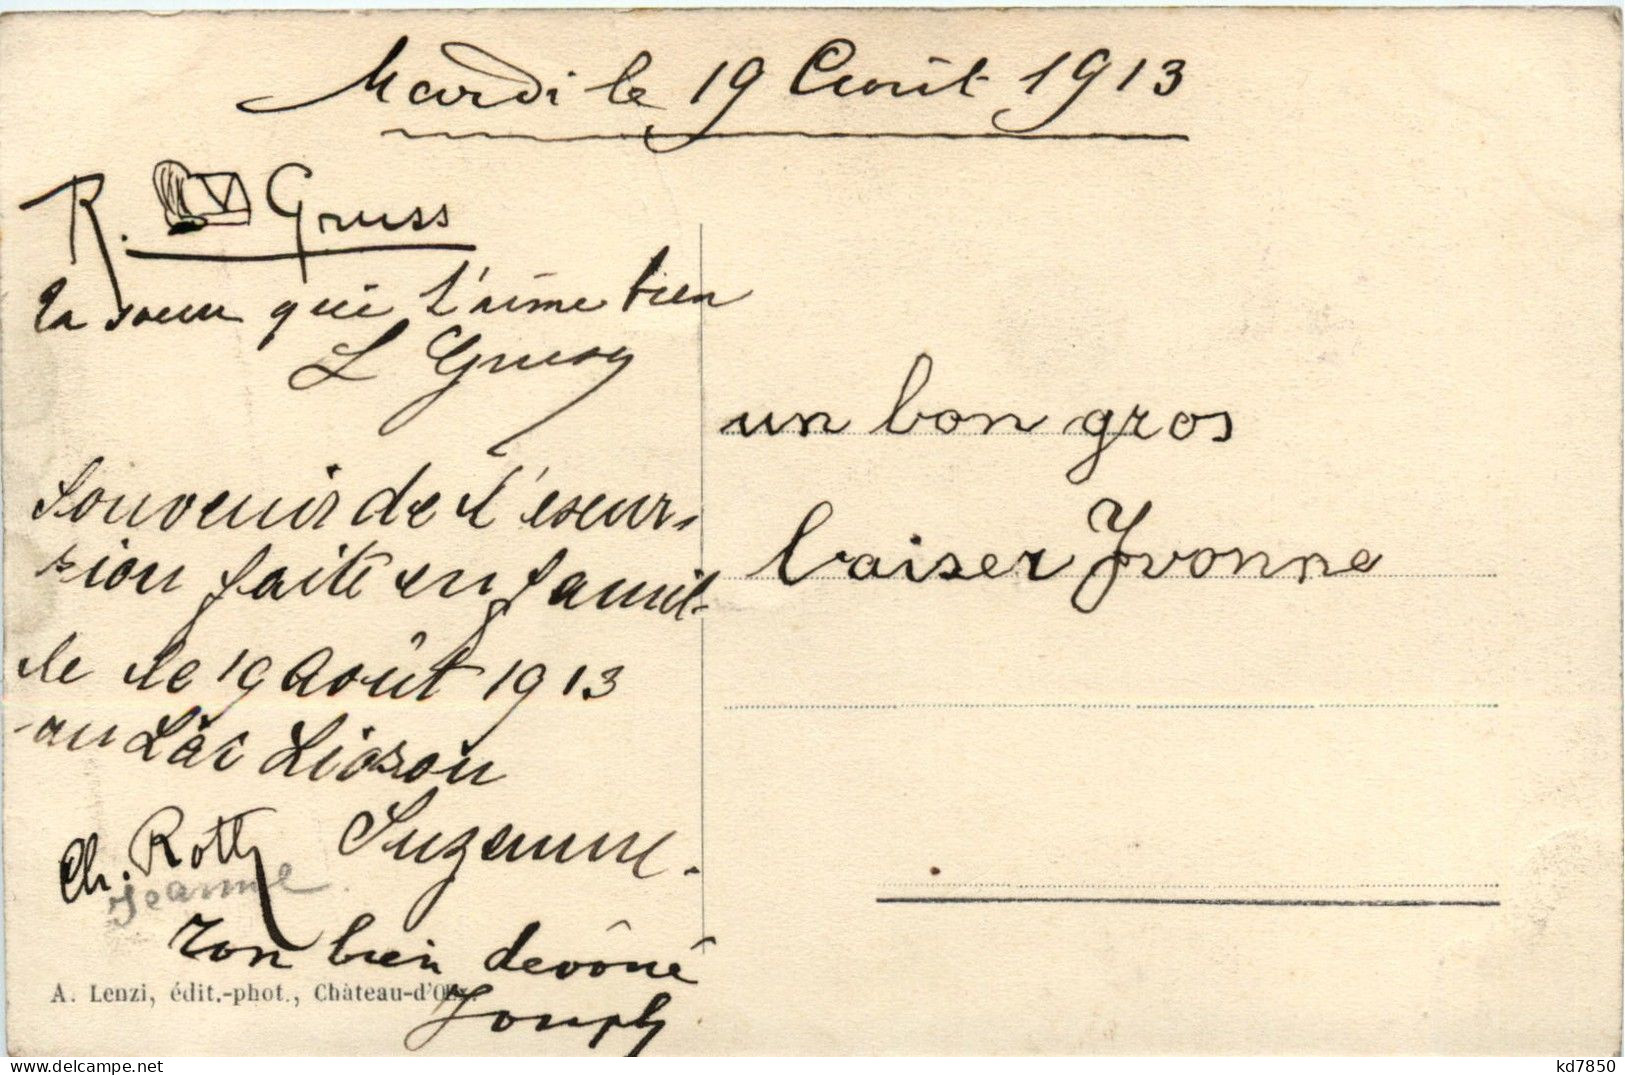 Mardi le 19 Août 1913
R. Gruss
Ta soeur qui t'aime bien
L
Souvenir de l'escur-
sion faite en famil-
le le 19 Août 1913
au Lac Lioson
Ch. Roth Suzanne.
Jeanne.
Ton bien dévôué
Joseph
A. Lenzi, édit.-phot., Château-d'Œx.
un bon gros
baiser Yvonne
kd7850